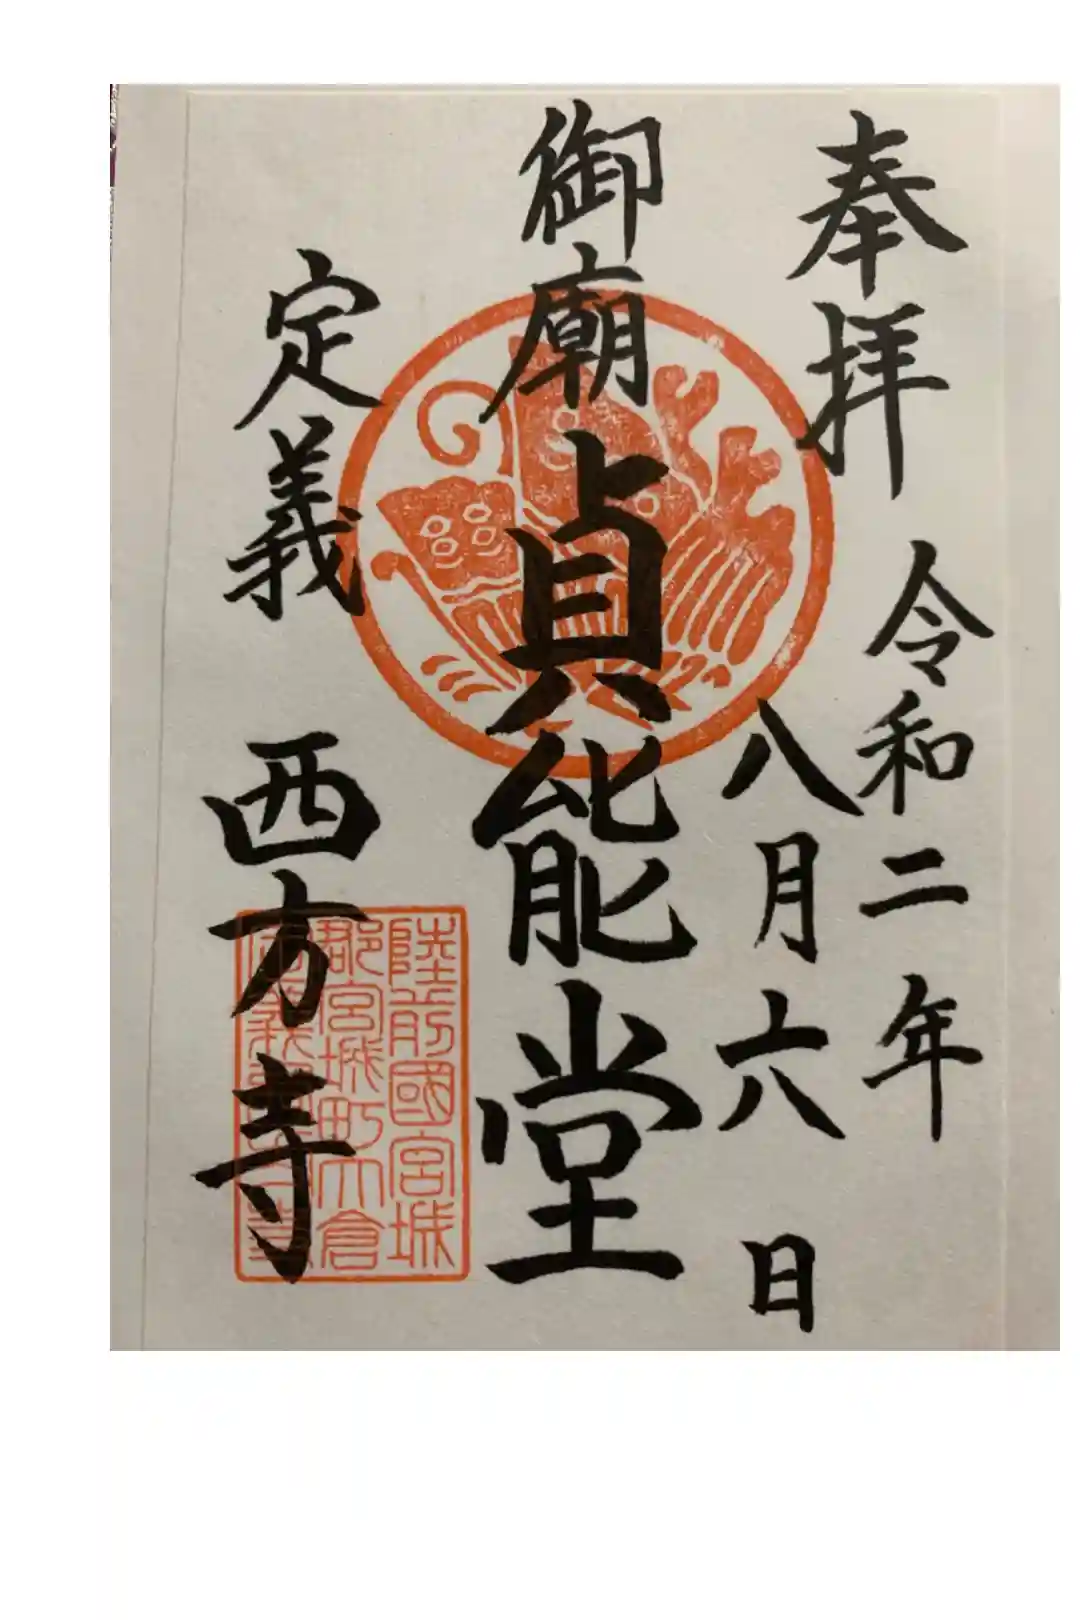 奉拝
令和二年
八月六日
御廟貞能堂
定義
西方寺
陸前國宮城
郡宮城町大倉